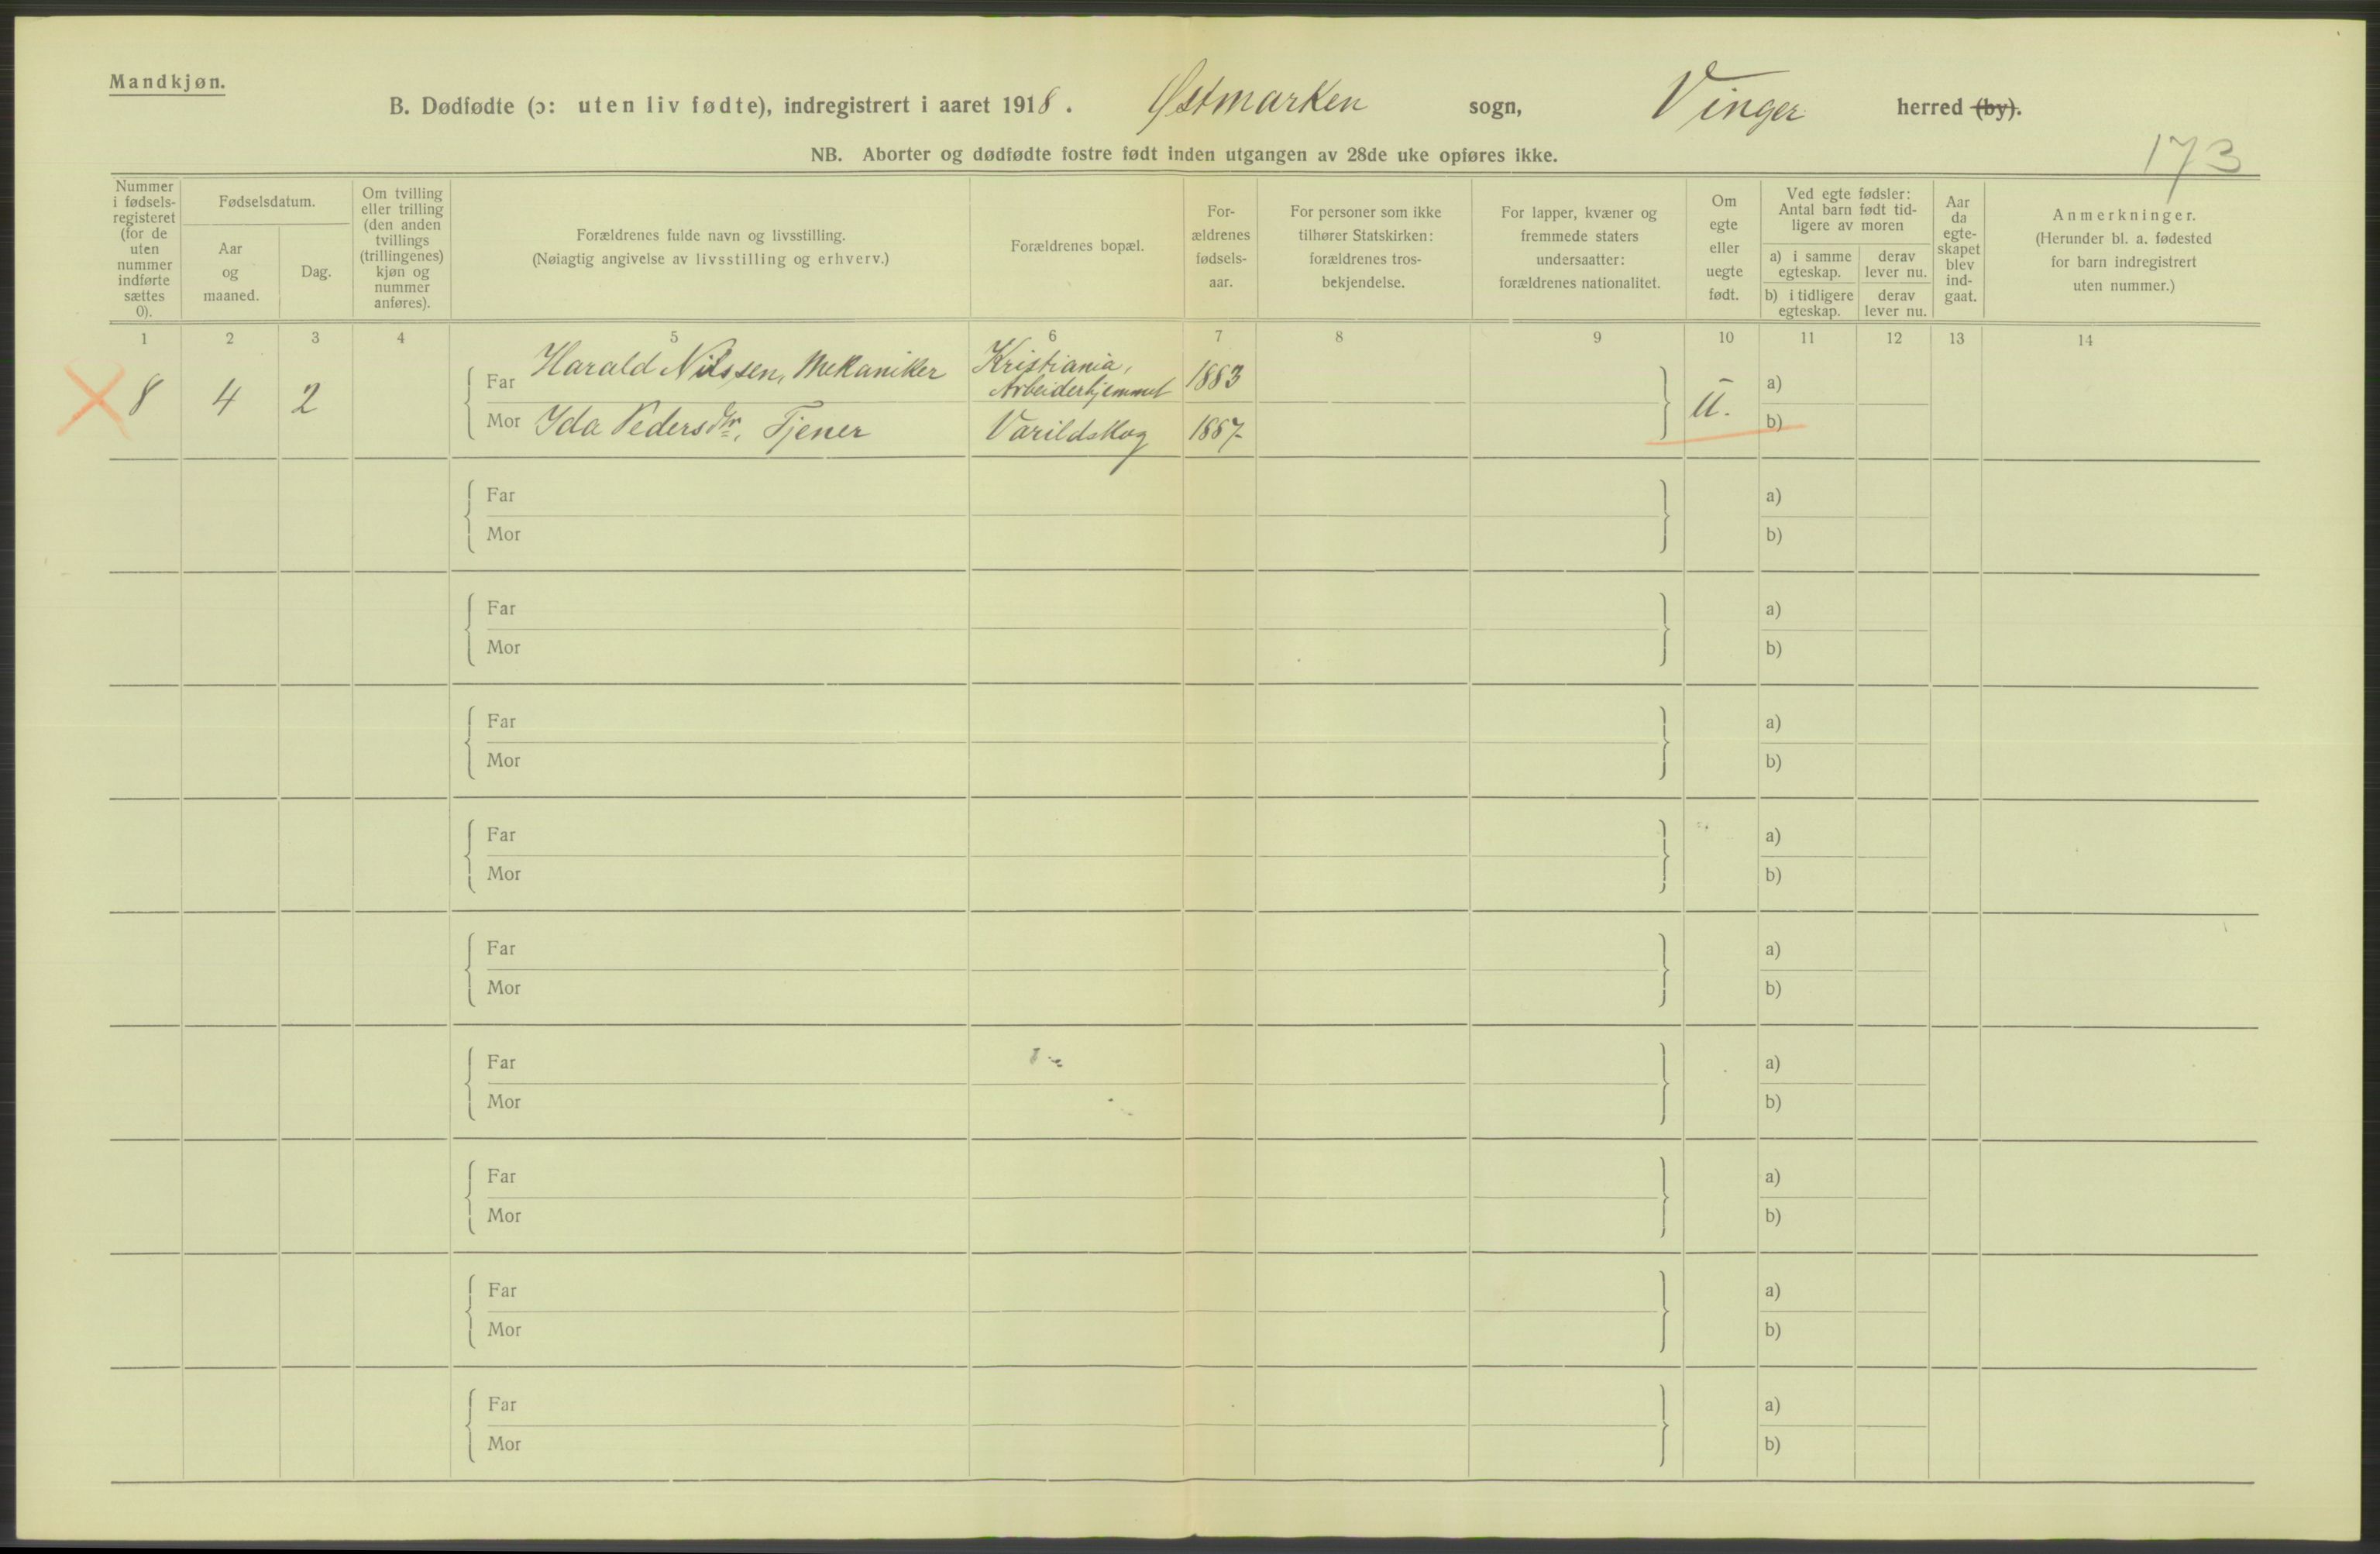 Mandkjøn.
B. Dødfødte (ɔ: uten liv fødte), indregistrert i aaret 1918. Østmarken sogn, Vinger herred (by).
NB. Aborter og dødfødte fostre født inden utgangen av 28de uke opføres ikke.
173
Nummer i fødsels-registeret (for de uten nummer indførte sættes 0).
Fødselsdatum.
Aar og maaned.
Dag.
Om tvilling eller trilling (den anden tvillings (trillingenes) kjøn og nummer anføres).
Forældrenes fulde navn og livsstilling.
(Nøiagtig angivelse av livsstilling og erhverv.)
Forældrenes bopæl.
For-ældrenes fødsels-aar.
For personer som ikke tilhører Statskirken: forældrenes tros-bekjendelse.
For lapper, kvæner og fremmede staters undersaatter: forældrenes nationalitet.
Om egte eller uegte født.
Ved egte fødsler: Antal barn født tid-ligere av moren
a) i samme egteskap.
derav lever nu.
b) i tidligere egteskap.
derav lever nu.
Aar da egte-skapet blev ind-gaat.
Anmerkninger.
(Herunder bl. a. fødested for barn indregistrert uten nummer.)
1 2 3 4 5 6 7 8 9 10 11 12 13 14
8 4 2 Far Harald Nilssen, Mekaniker Kristiania, Arbeiderhjemmet 1883 U. a)
Mor Ida Pedersdtr, Tjener Varildskog 1887 b)
Far a)
Mor b)
Far a)
Mor b)
Far a)
Mor b)
Far a)
Mor b)
Far a)
Mor b)
Far a)
Mor b)
Far a)
Mor b)
Far a)
Mor b)
Far a)
Mor b)